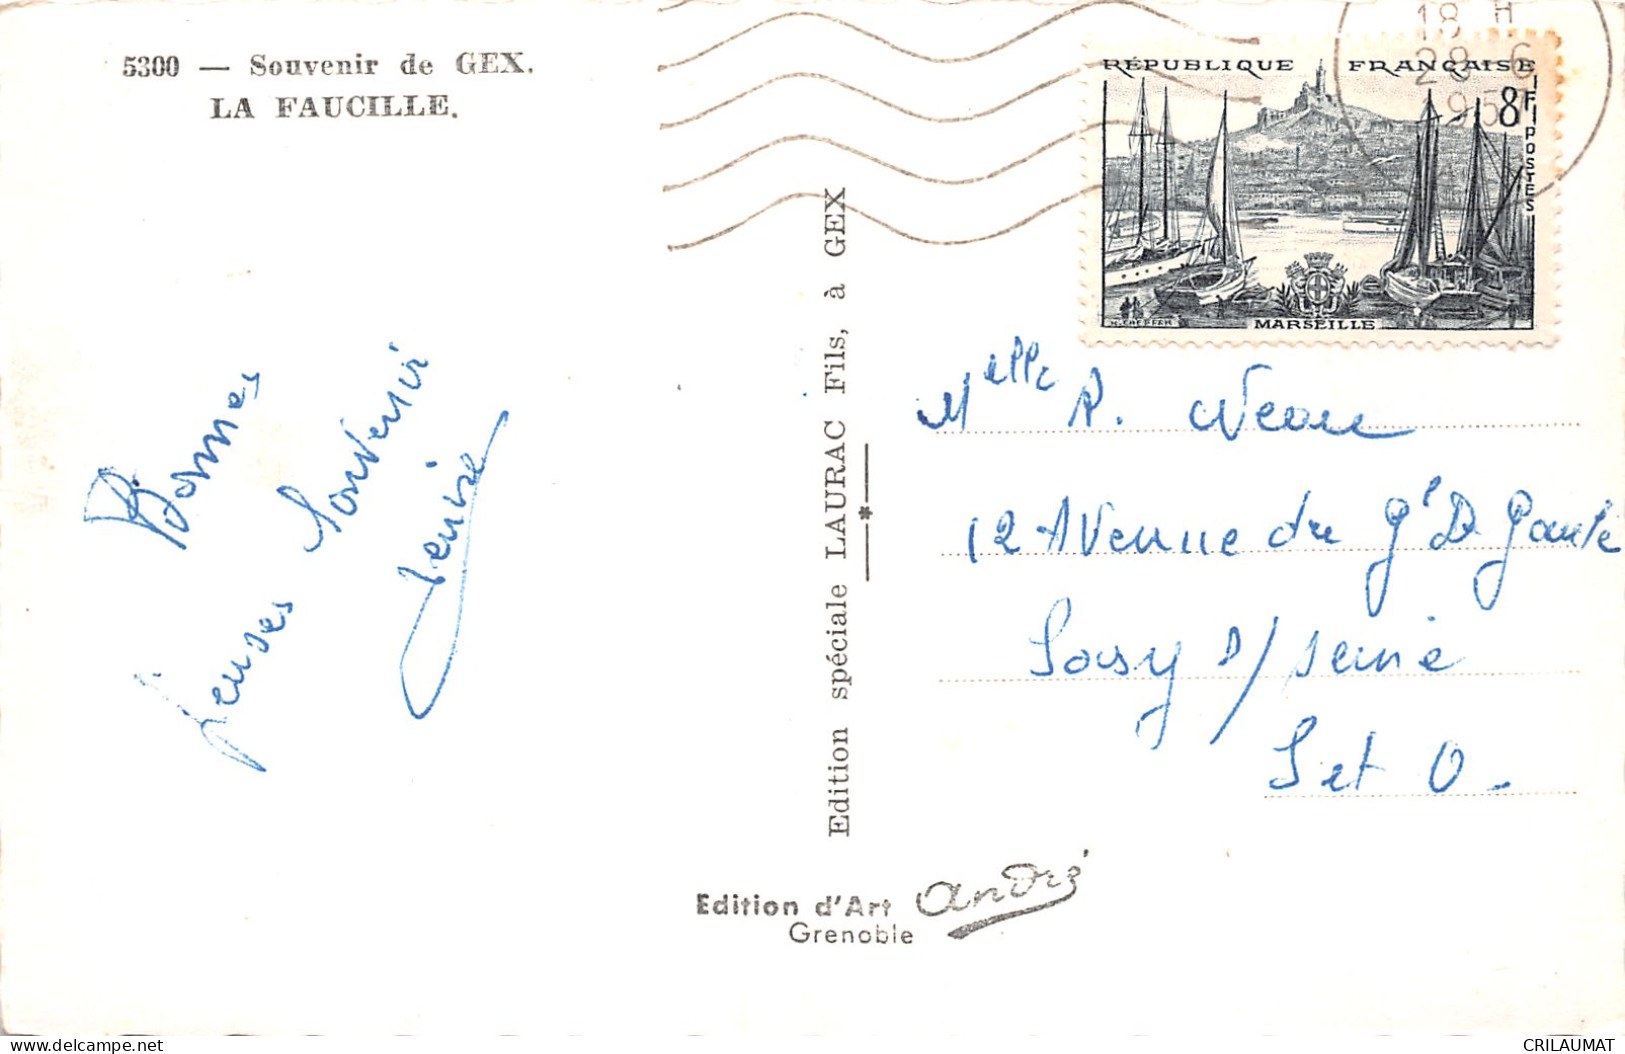 5300 — Souvenir de GEX.
LA FAUCILLE.
18 H
28 6
195
RÉPUBLIQUE FRANÇAISE
8F
POSTES
MARSEILLE
Bonnes
Pensées Souvenir
Denise
Edition spéciale LAURAC Fils, à GEX
Melle R.
12 Avenue du Gl D
Soisy s/ Seine
S et O.
Edition d'Art André
Grenoble
delcampe.net
CRILAUMAT